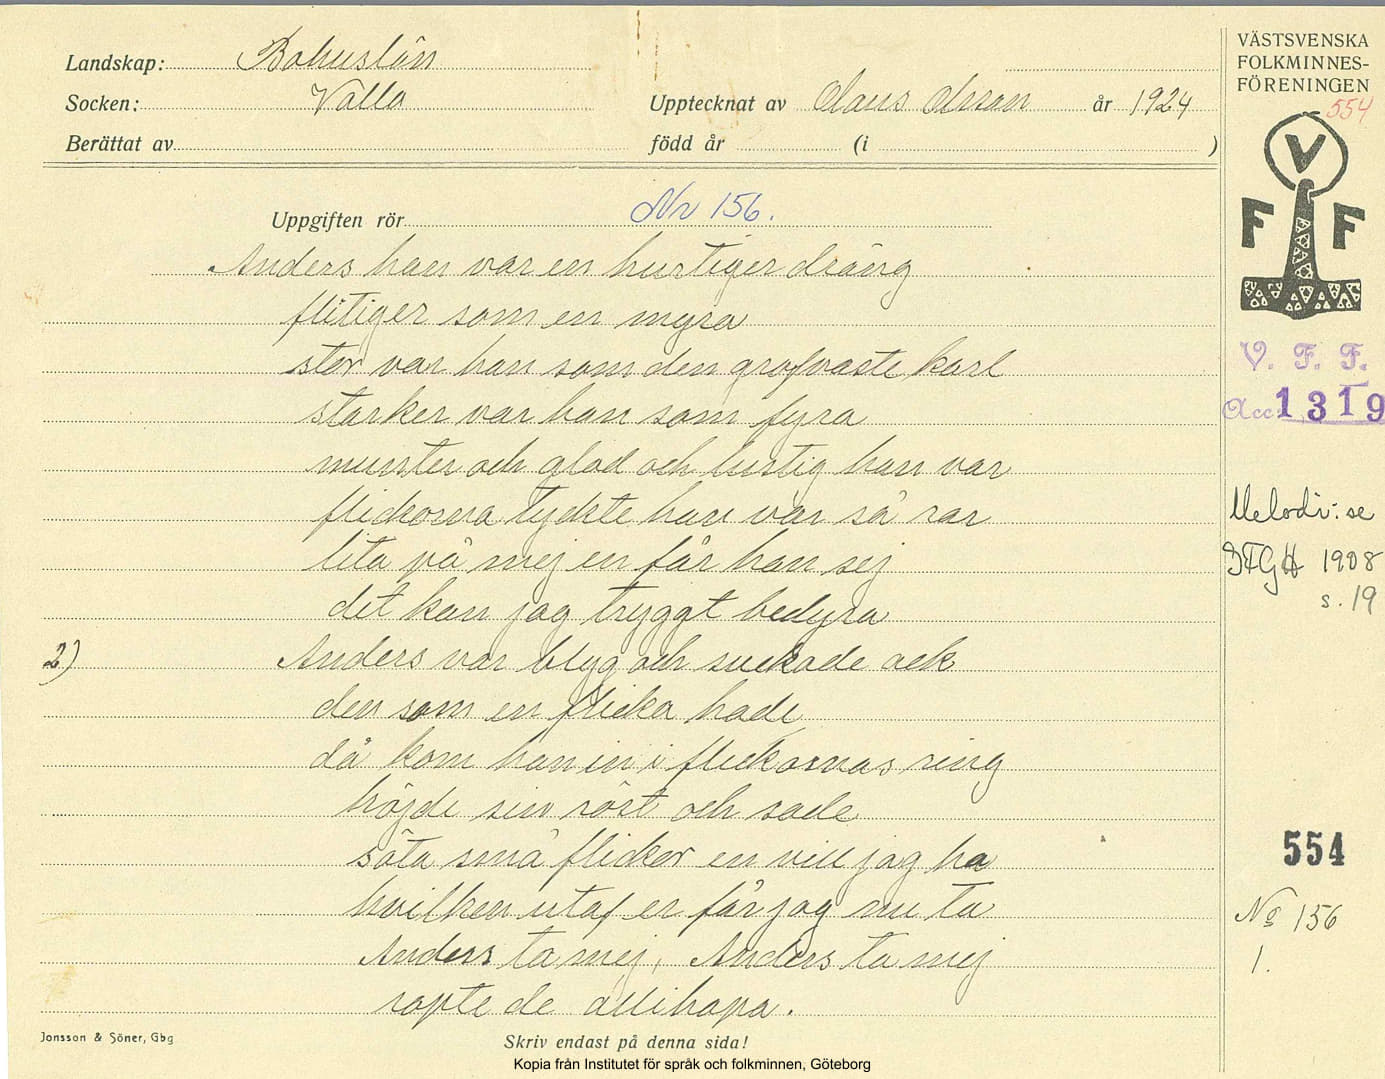 Landskap: Bohuslän
Socken: Valla
Upptecknat av Claus Olsson år 1924
Berättat av
född år (i )
Uppgiften rör Nr 156.
Anders han var en hurtiger dräng
flitiger som en myra
stor var han som den grofvaste karl
starker var han som fyra
munter och glad och lustig han var
flickorna tyckte han var så rar
lita på mej en får han sej
det kan jag tryggt bedyra
2) Anders var blyg och suckade ack
den som en flicka hade
då kom han in i flickornas ring
höjde sin röst och sade
söta små flickor en vill jag ha
hvilken utaf er får jag nu ta
Anders ta mej, Anders ta mej
ropte de allihopa.
Jonsson & Söner, Gbg
Skriv endast på denna sida!
Kopia från Institutet för språk och folkminnen, Göteborg
VÄSTSVENSKA
FOLKMINNES-
FÖRENINGEN
554
V
F F
V. F. F.
Acc. 1319
Melodi: se
IFGH 1908
s. 19
554
No 156
1.